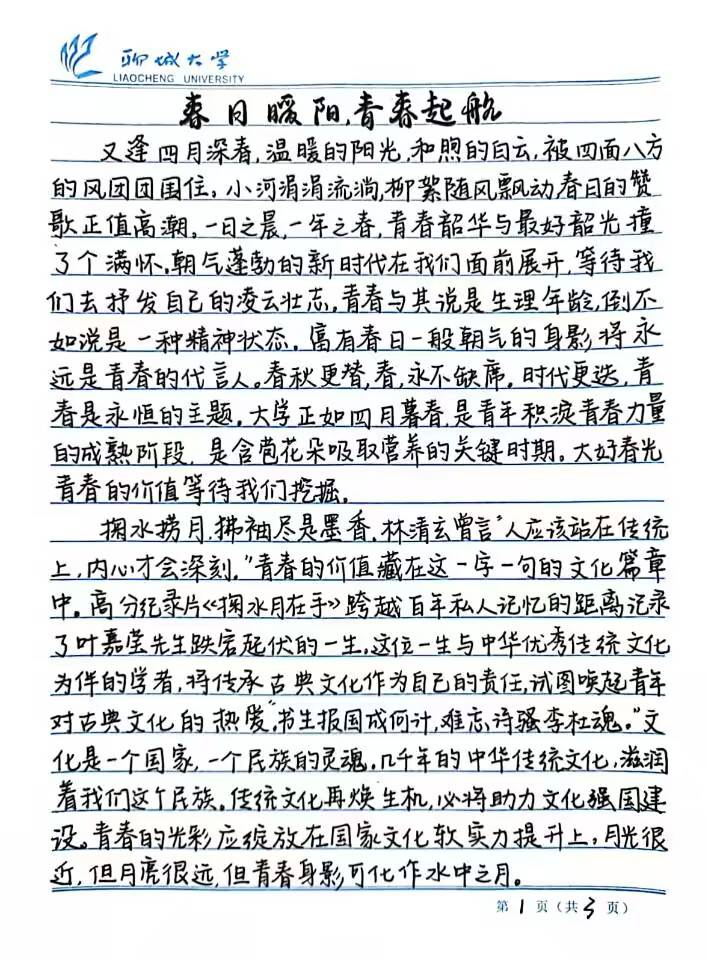 聊城大学
LIAOCHENG UNIVERSITY
春日暖阳,青春起航
又逢四月深春,温暖的阳光,和煦的白云,被四面八方
的风团团围住。小河涓涓流淌,柳絮随风飘动,春日的赞
歌正值高潮。一日之晨,一年之春,青春韶华与最好韶光撞
了个满怀。朝气蓬勃的新时代在我们面前展开,等待我
们去抒发自己的凌云壮志。青春与其说是生理年龄,倒不
如说是一种精神状态。富有春日一般朝气的身影将永
远是青春的代言人。春秋更替,春,永不缺席。时代更迭,青
春是永恒的主题。大学正如四月暮春,是青年积淀青春力量
的成熟阶段,是含苞花朵吸取营养的关键时期。大好春光
青春的价值等待我们挖掘。
掬水捞月,拂袖尽是墨香。林清玄曾言"人应该站在传统
上,内心才会深刻。"青春的价值藏在这一字一句的文化篇章
中。高分纪录片《掬水月在手》跨越百年私人记忆的距离记录
了叶嘉莹先生跌宕起伏的一生。这位一生与中华优秀传统文化
为伴的学者,将传承古典文化作为自己的责任,试图唤起青年
对古典文化的热爱。"书生报国成何计,难忘诗骚李杜魂。"文
化是一个国家,一个民族的灵魂。几千年的中华传统文化,滋润
着我们这个民族。传统文化再焕生机,必将助力文化强国建
设。青春的光彩应绽放在国家文化软实力提升上,月光很
近,但月亮很远,但青春身影可化作水中之月。
第1页(共3页)